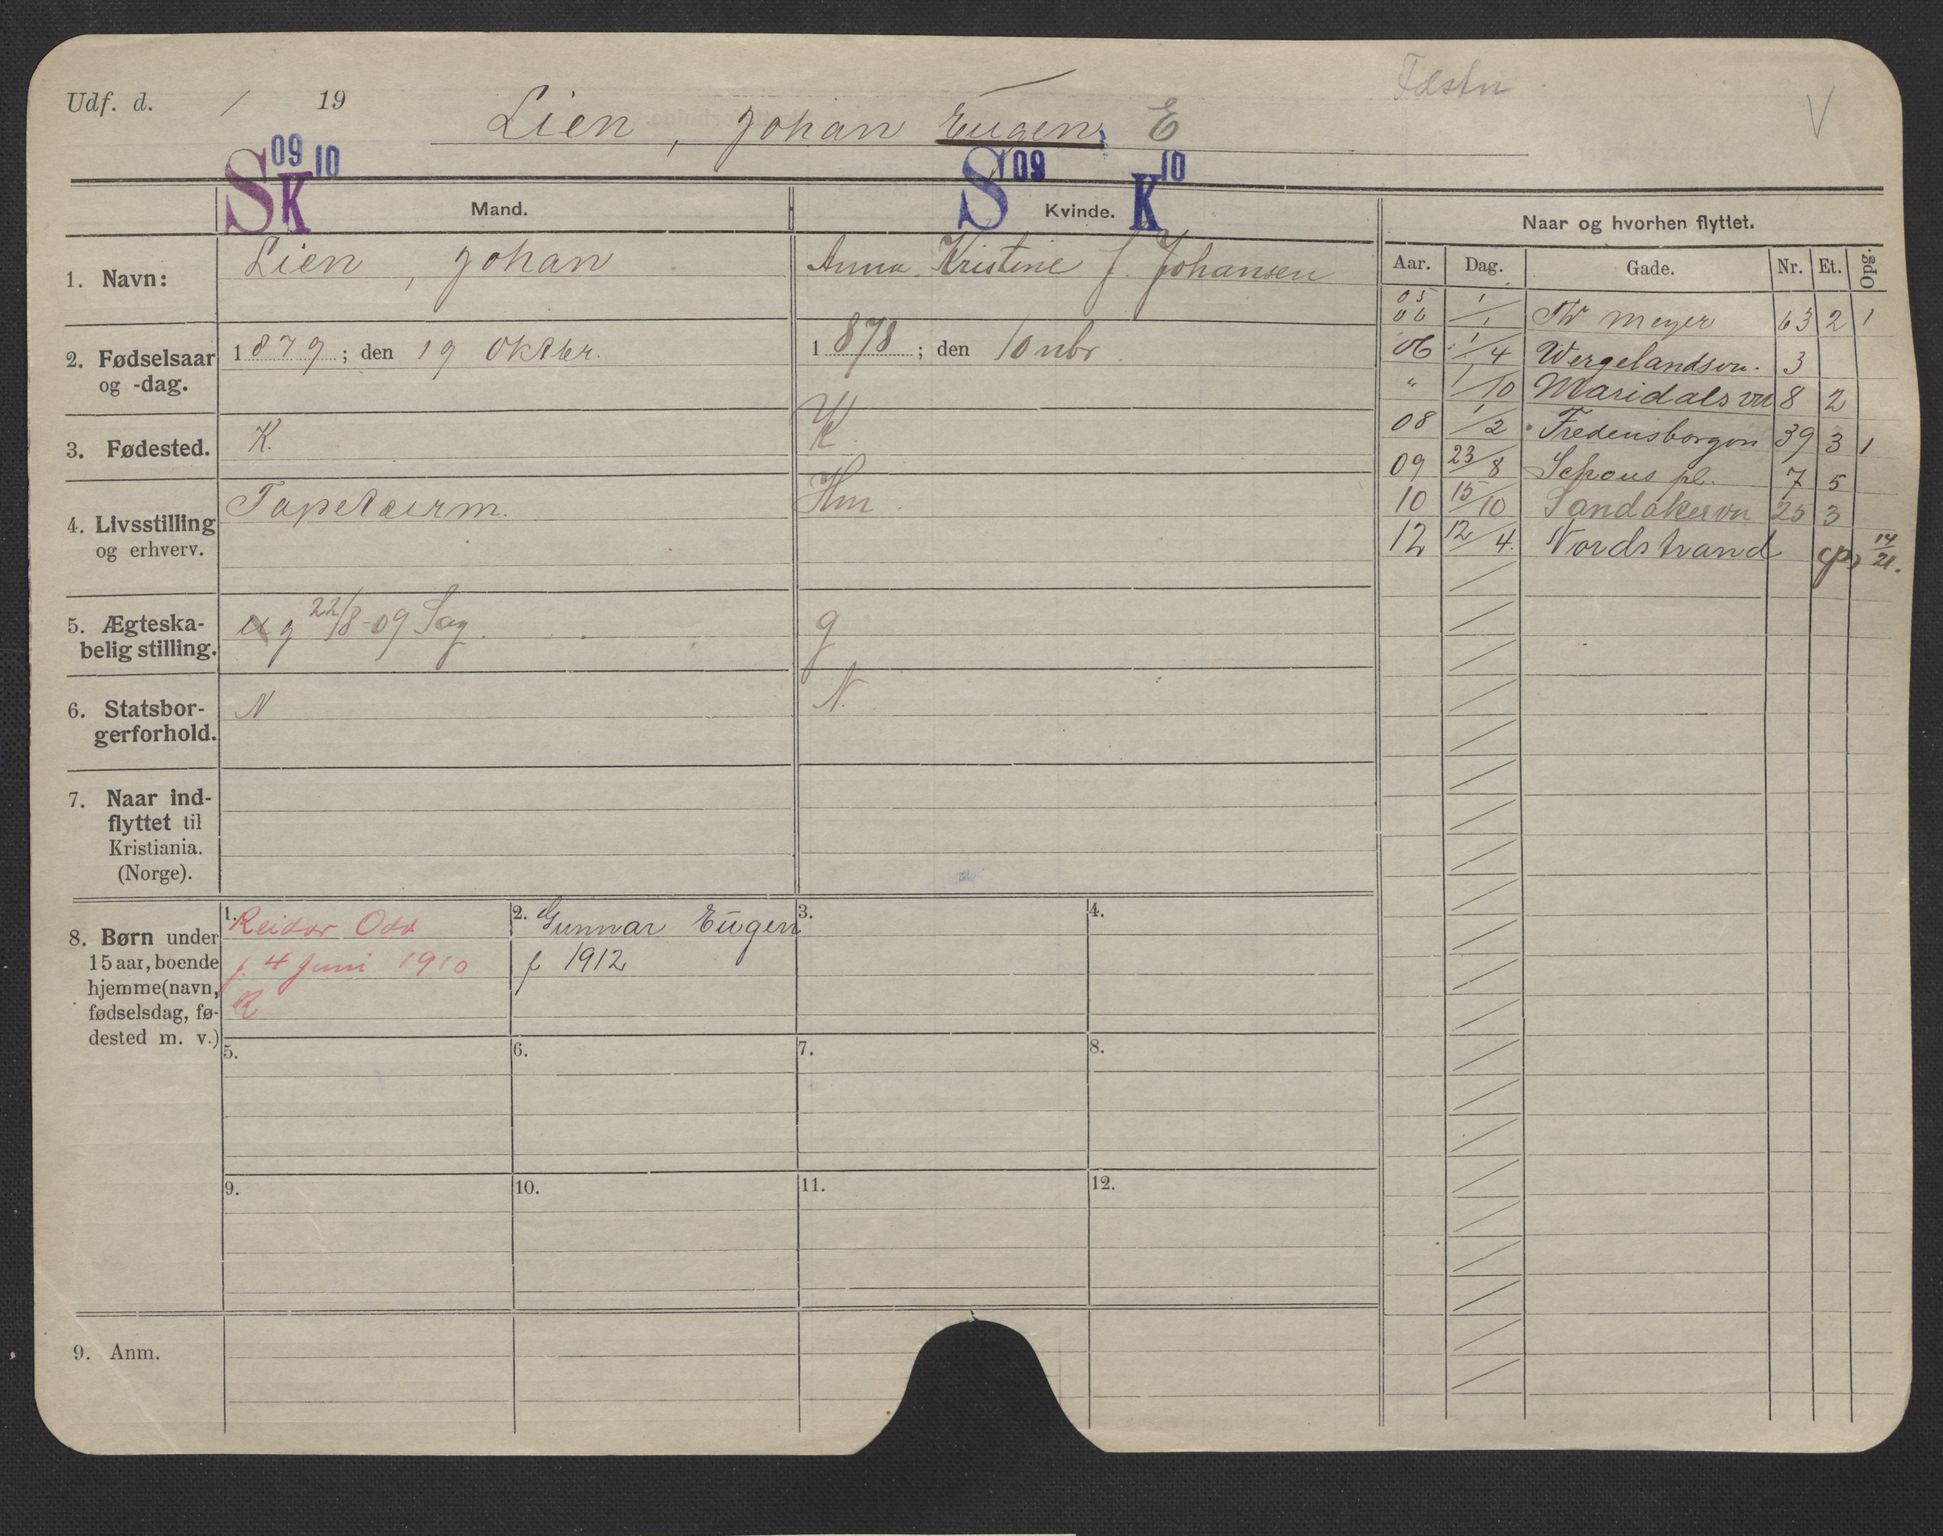 Udf. d. / 19
Lien, Johan Eugen, E
V
S 09 K 10
S 09 K 10
Mand.
Kvinde.
Naar og hvorhen flyttet.
Aar. Dag. Gade. Nr. Et. Opg.
1. Navn:
Lien, Johan
Anna Kristine f. Johansen
2. Fødselsaar
og -dag.
1879; den 19 Oktbr.
1878; den 10 nbr.
3. Fødested.
K.
K.
4. Livsstilling
og erhverv.
Tapetserm.
Hm
5. Ægteska-
belig stilling.
u g 22/8-09 Sag.
g
6. Statsbor-
gerforhold.
N
N.
7. Naar ind-
flyttet til
Kristiania.
(Norge).
8. Børn under
15 aar, boende
hjemme (navn,
fødselsdag, fø-
dested m. v.)
1. Reidar Odd
f. 4 Juni 1910
K
2. Gunnar Eugen
f 1912
3.
4.
5.
6.
7.
8.
9.
10.
11.
12.
9. Anm.
05
06 1/1 Th Meyer 63 2 1
06 1/4 Wergelandsvn. 3
" 1/10 Maridalsvn 8 2
08 1/2 Fredensborgvn 39 3 1
09 23/8 Schous pl. 7 5
10 15/10 Sandakervn 25 3
12 12/4 Nordstrand 14/21.